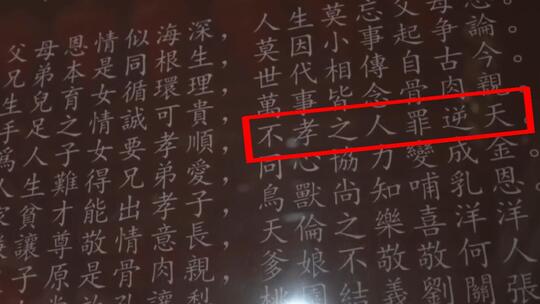 思論今親天金恩洋人張
母爭古肉逆成乳洋何關
父起自骨罪變哺喜敬劉
忘事傳念人力知樂敬義
莫小相皆之協尚之不結
生因代事孝心獸倫娘園
人莫世萬不同鳥天爹桃
深生理貴順愛子長親梨
海根環可孝弟孝意肉讓
似同循誠要兄出情骨
情是女情女得能敬是
恩本育之子難才尊原
母弟兒足人生貧讓子
父兄生手爲人家